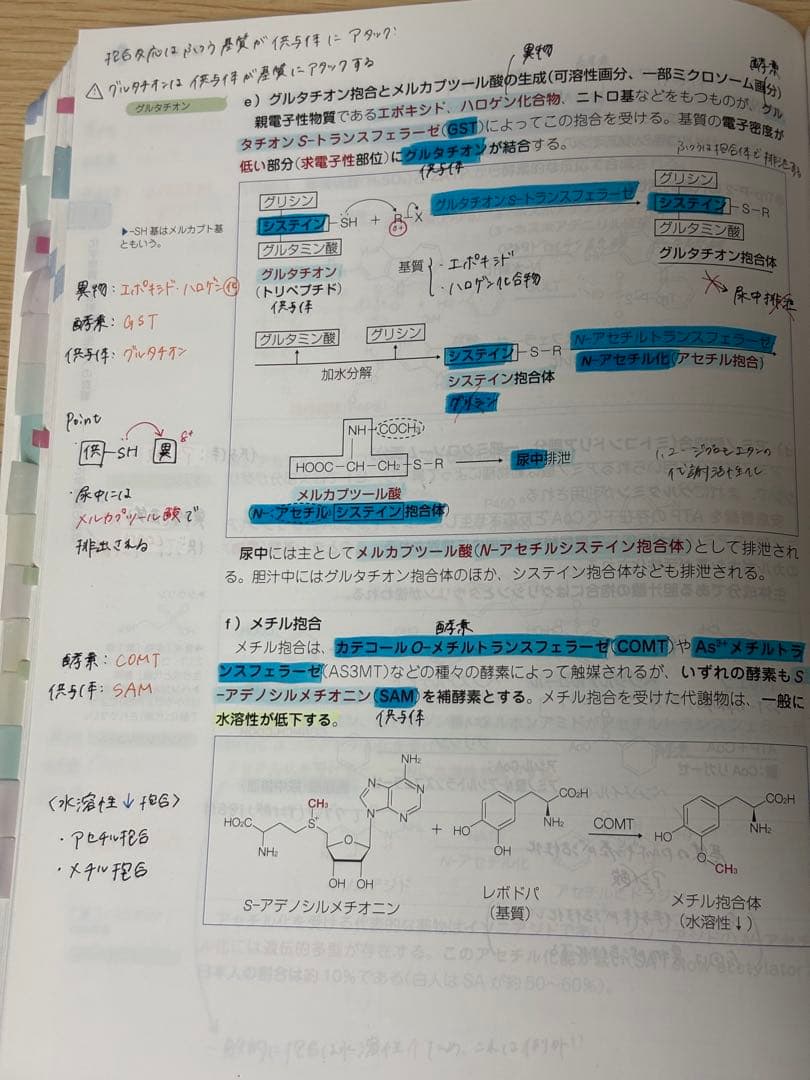 抱合反応はふつう基質が供与体にアタック
⚠グルタチオンは供与体が基質にアタックする
グルタチオン
異物
酵素
e）グルタチオン抱合とメルカプツール酸の生成（可溶性画分、一部ミクロソーム画分）
親電子性物質であるエポキシド、ハロゲン化合物、ニトロ基などをもつものが、グル
タチオンS-トランスフェラーゼ（GST）によってこの抱合を受ける。基質の電子密度が
低い部分（求電子性部位）にグルタチオンが結合する。
供与体
ふつうは抱合体で排泄する
▶-SH基はメルカプト基
ともいう。
グリシン
システイン-SH + R-X
δ+
グルタミン酸
グルタチオン
（トリペプチド）
供与体
グルタチオンS-トランスフェラーゼ
基質
・エポキシド
・ハロゲン化合物
グリシン
システイン-S-R
グルタミン酸
グルタチオン抱合体
尿中排泄
異物：エポキシド・ハロゲン化
酵素：GST
供与体：グルタチオン
グルタミン酸
グリシン
加水分解
システイン-S-R
システイン抱合体
N-アセチルトランスフェラーゼ
N-アセチル化（アセチル抱合）
Point
供-SH 異 δ+
・尿中には
メルカプツール酸で
排出される
NH-COCH3
HOOC-CH-CH2-S-R
尿中排泄
メルカプツール酸
（N-アセチルシステイン抱合体）
1,2-ジブロモエタンの
代謝活性化
尿中には主としてメルカプツール酸（N-アセチルシステイン抱合体）として排泄され
る。胆汁中にはグルタチオン抱合体のほか、システイン抱合体なども排泄される。
f）メチル抱合
酵素
メチル抱合は、カテコールO-メチルトランスフェラーゼ（COMT）やAs3+メチルトラ
ンスフェラーゼ（AS3MT）などの種々の酵素によって触媒されるが、いずれの酵素もS
-アデノシルメチオニン（SAM）を補酵素とする。メチル抱合を受けた代謝物は、一般に
水溶性が低下する。
供与体
酵素：COMT
供与体：SAM
〈水溶性↓抱合〉
・アセチル抱合
・メチル抱合
NH2
CH3
HO2C
S+
NH2
N
N
N
N
O
OH OH
S-アデノシルメチオニン
+
HO
OH
CO2H
NH2
レボドパ
（基質）
COMT
HO
O
CH3
CO2H
NH2
メチル抱合体
（水溶性↓）